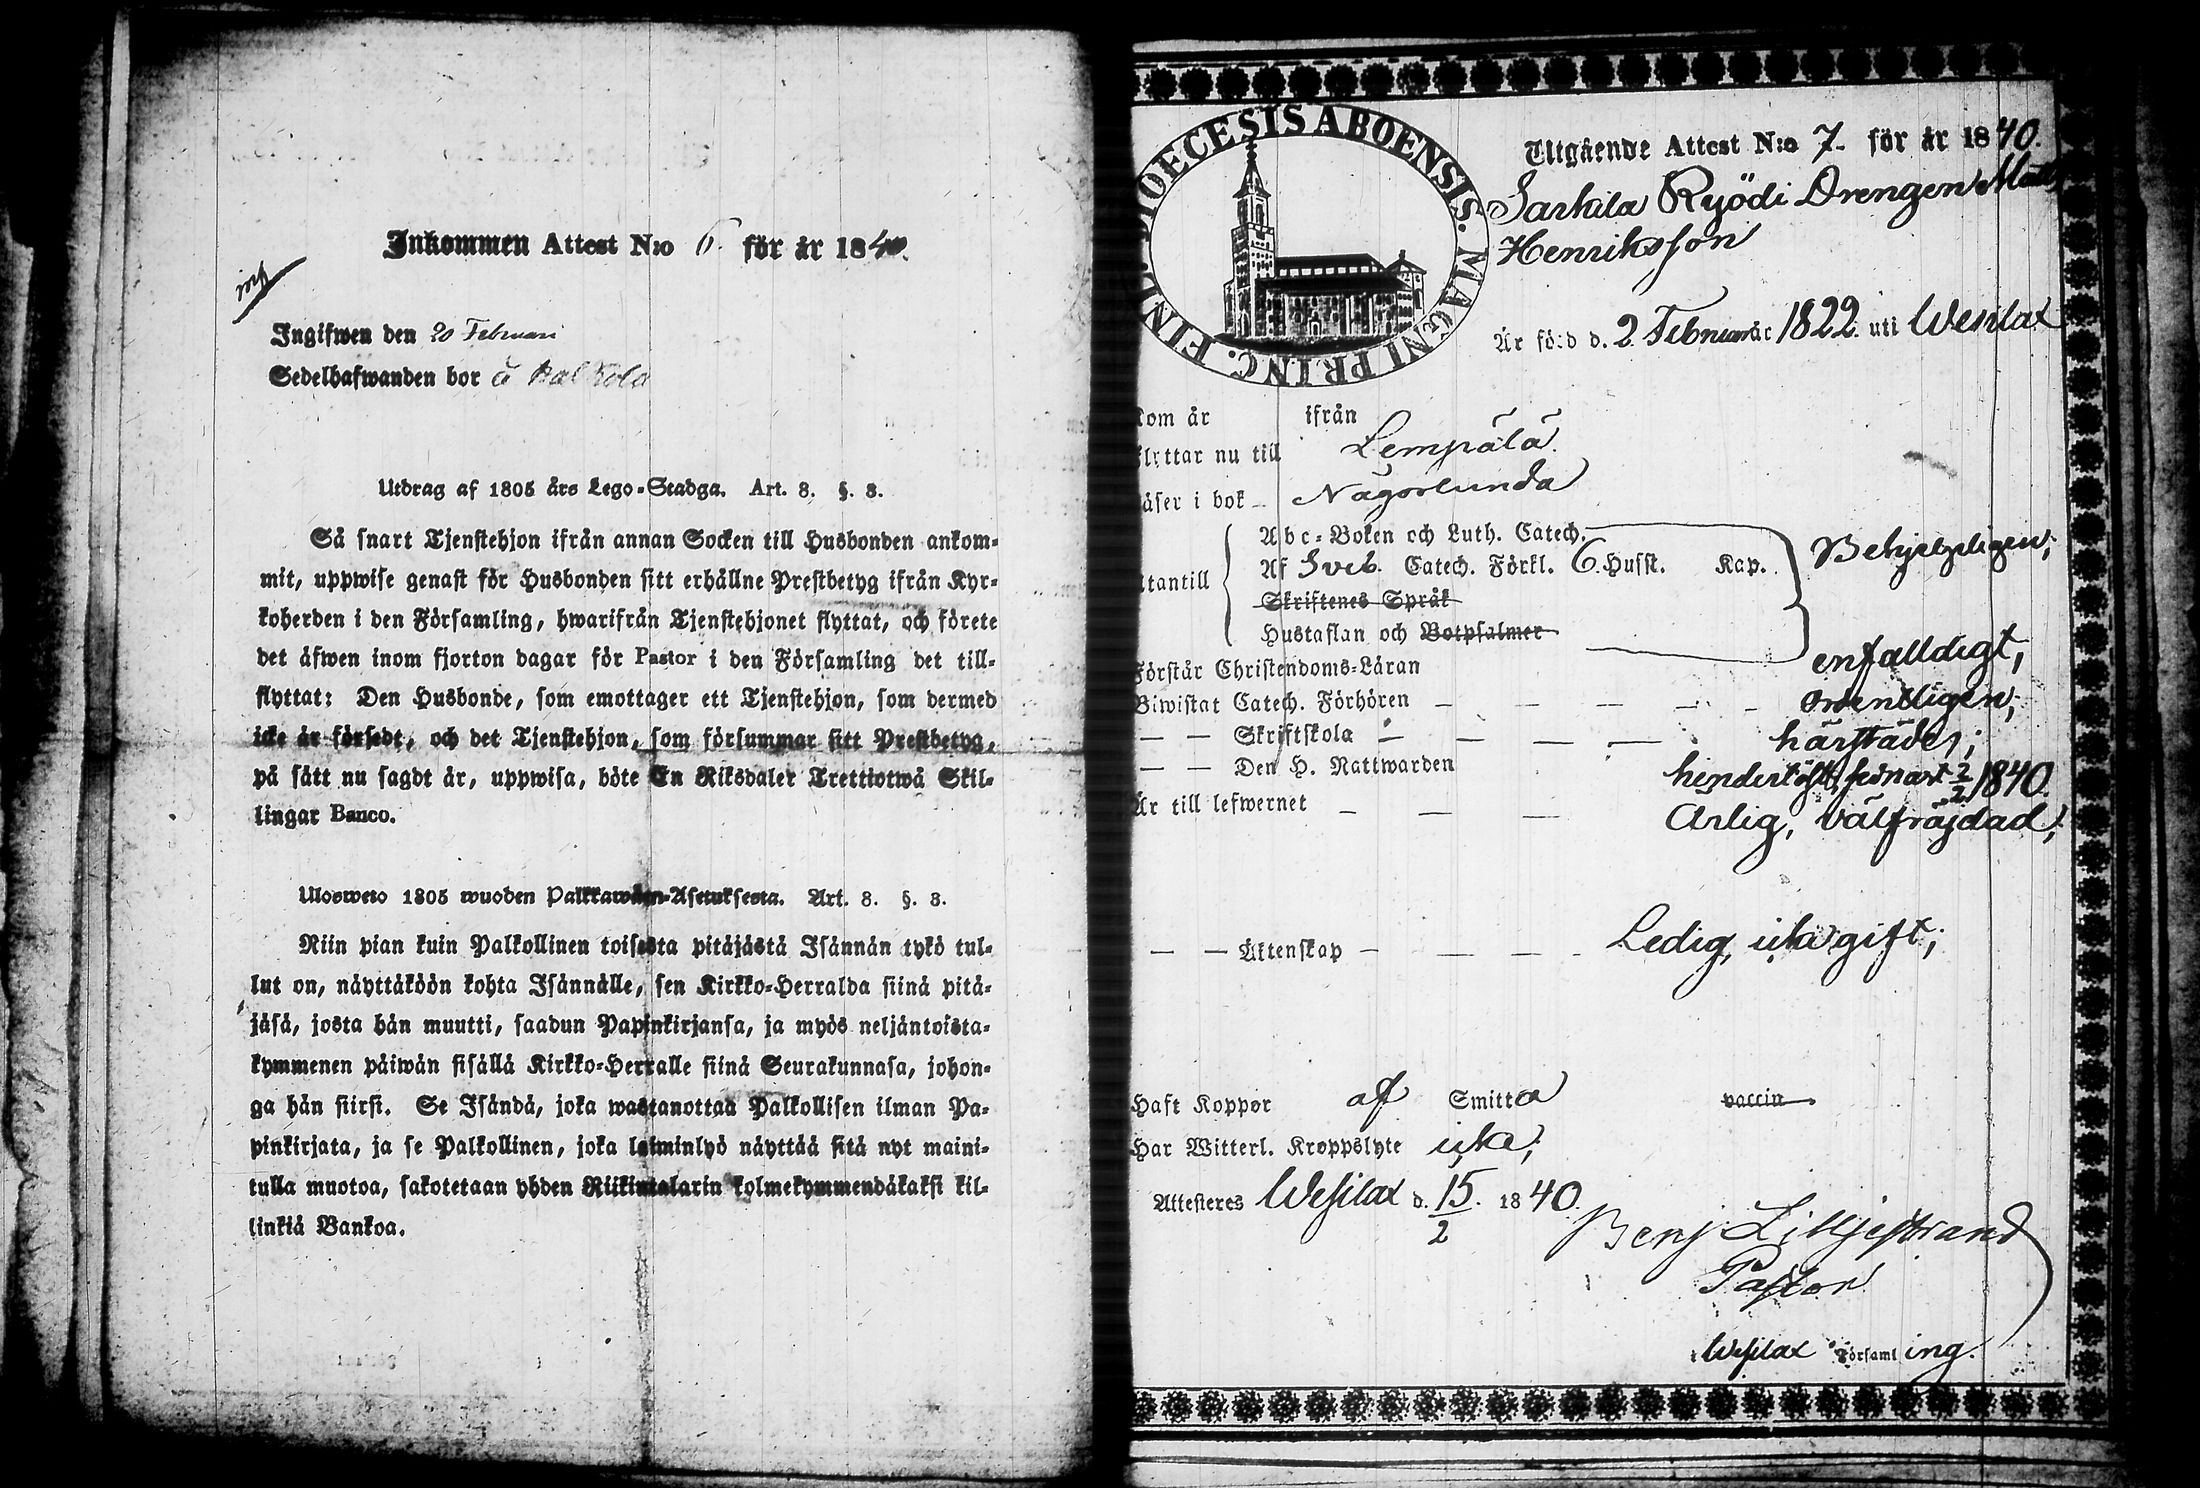 Inkommen Attest N:o 6. för år 1840.
Ingifwen den 20 Februari
Sedelhafwanden bor å
Utdrag af 1805 års Lego-Stadga. Art. 8. §. 8.
Så snart Tjenstehjon ifrån annan Socken till Husbonden ankom-
mit, uppwise genast för Husbonden sitt erhållne Prestbetyg ifrån Kyr-
koherden i den Församling, hwarifrån Tjenstehjonet flyttat, och förete
det äfwen inom fjorton dagar för Pastor i den Församling det till-
flyttat: Den Husbonde, som emottager ett Tjenstehjon, som dermed
icke är försedt, och det Tjenstehjon, som försummar sitt Prestbetyg,
på sätt nu sagdt är, uppwisa, böte En Riksdaler Trettiotwå Skil-
lingar Banco.
Ulosweto 1805 wuoden Palkkawäen-Asetuksesta. Art. 8. §. 8.
Niin pian kuin Palkollinen toisesta pitäjästä Isännän tykö tul-
lut on, näyttäköön kohta Isännälle, sen Kirkko-Herralda siinä pitä-
jäsä, josta hän muutti, saadun Papinkirjansa, ja myös neljäntoista-
kymmenen päiwän sisällä Kirkko-Herralle siinä Seurakunnasa, johon-
ga hän siirsi. Se Isändä, joka wastanottaa Palkollisen ilman Pa-
pinkirjata, ja se Palkollinen, joka laiminlyö näyttää sitä nyt maini-
tulla muotoa, sakotetaan yhden Riikintalarin kolmekymmendäkaksi kil-
linkiä Bankoa.
DIOECESIS ABOENSIS. MAGNI PRINC. FINL.
Utgående Attest N:o 7. för år 1840.
Sarkila Ryödi Drengen Matts
Henriksson
Är född d. 2 Februarii år 1822. uti Wesilax
Kom år ifrån
Flyttar nu till Lempälä.
Läser i bok Någorlunda
Abc-Boken och Luth. Catech.
Utantill Af Sveb. Catech. Förkl. 6. Husst. Kap. Behjelpligen;
Skriftenes Språk
Hustaflan och Botpsalmer
Förstår Christendoms-Läran enfalldigt,
Biwistat Catech. Förhören ordentligen;
Skriftskola härstädes;
Den H. Nattwarden sednast 2/2 1840.
Är till lefwernet Ärlig, välfräjdad;
Äktenskap Ledig, icke gift;
Haft Koppor af Smitta vaccin
Har Witterl. Kroppslyte icke;
Attesteres Wesilax d. 15/2. 1840.
Benj Lilljestrand
Pastor
i Wesilax Församling.